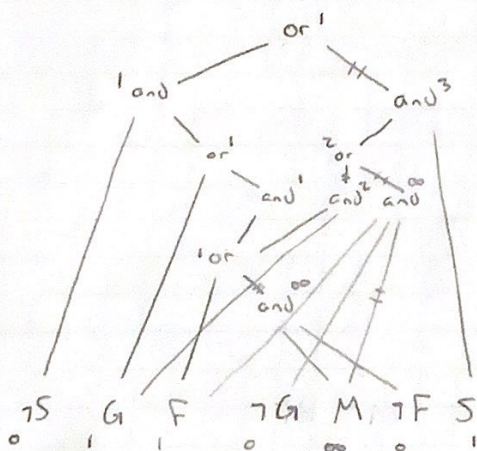 or 1
1 and
and 3
or 1
2 or
and 1
and 2
and ∞
1 or
and ∞
¬S G F ¬G M ¬F S
0 1 1 0 ∞ 0 1